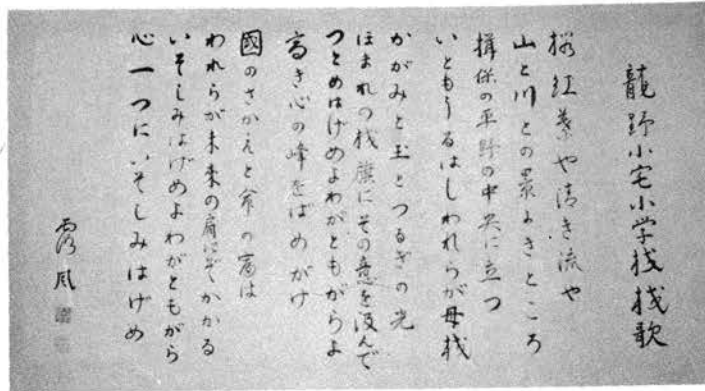 龍野小宅小学校校歌
桜紅葉や清き流や
山と川との景よきところ
揖保の平野の中央に立つ
いともうるはしわれらが母校
かがみと玉とつるぎの光
ほまれの校旗にその意を汲んで
つとめはげめよわがともがらよ
高き心の峰をばめがけ
國のさかえと命の富は
われらが未来の肩にぞかかる
いそしみはげめよわがともがら
心一つにいそしみはげめ
露風